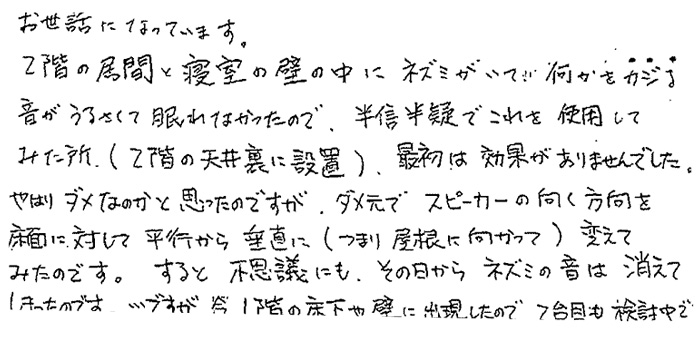 お世話になっています。
2階の居間と寝室の壁の中にネズミがいて!!何かをカジる
音がうるさくて眠れなかったので、半信半疑でこれを使用して
みた所、(2階の天井裏に設置)、最初は効果がありませんでした。
やはりダメなのかと思ったのですが、ダメ元でスピーカーの向く方向を
床面に対して平行から垂直に(つまり屋根に向かって)変えて
みたのです。すると不思議にも、その日からネズミの音は消えて
しまったのです。ですが 1階の床下や壁に出現したので 2台目も検討中で